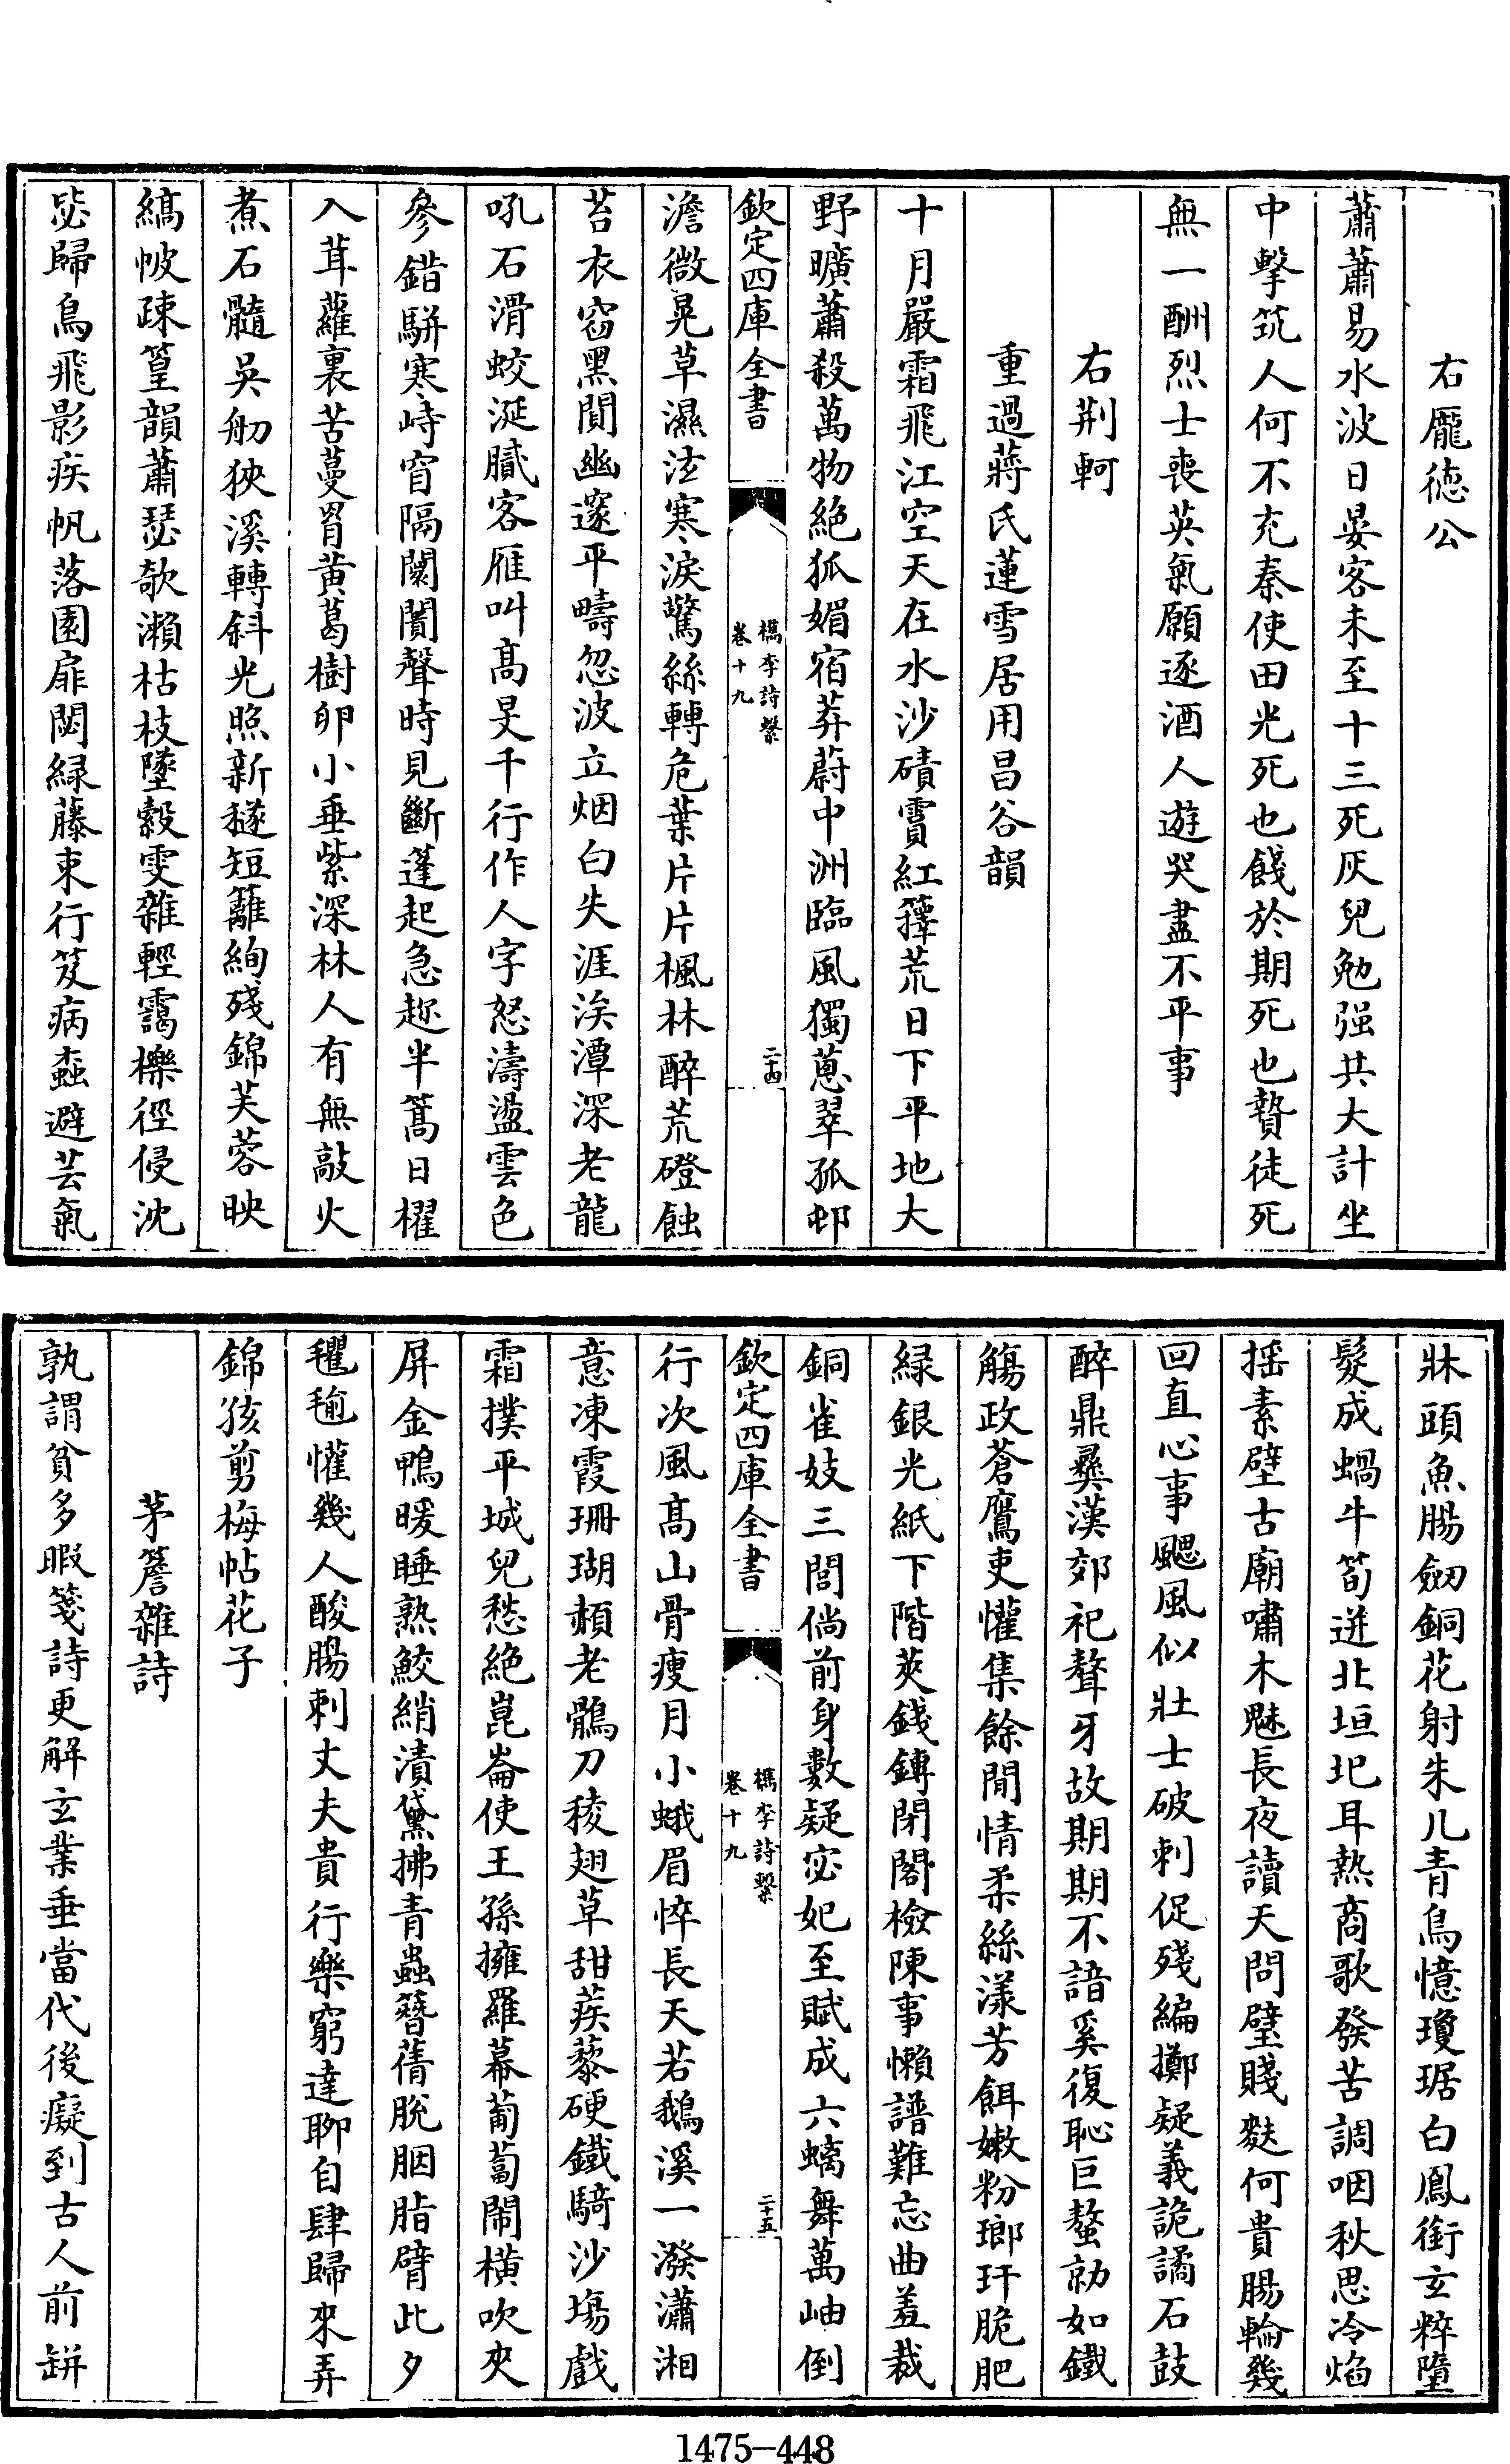 右龎徳公
蕭蕭易水波日晏客未至十三死灰兒勉强共大計坐
中擊筑人何不充秦使田光死也餞於期死也贄徒死
無一酬烈士喪英氣願逐酒人遊哭盡不平事
右荆軻
重過蔣氏蓮雪居用昌谷韻
十月嚴霜飛江空天在水沙磧賈紅蘀荒日下平地大
野曠蕭殺萬物絶狐媚宿莽蔚中洲臨風獨蔥翠孤邨
欽定四庫全書
檇李詩繫
卷十九
二十四
澹微晃草濕泫寒淚驚絲轉危葉片片楓林醉荒磴蝕
苔衣窈黑閴幽邃平疇忽波立烟白失涯涘潭深老龍
吼石滑蛟涎膩客雁叫髙旻千行作人字怒濤盪雲色
參錯駢寒峙窅隔闤闠聲時見斷蓬起急趂半篙日櫂
入茸蘿裏苦蔓罥黄葛樹卵小垂紫深林人有無敲火
煮石髓吳舠狹溪轉斜光照新穟短籬絢殘錦芙蓉映
縞帔疎篁韻蕭瑟欹瀨枯枝墜縠雯雜輕靄櫟徑侵沈
毖歸鳥飛影疾帆落園扉閟緑藤束行笈病蝨避芸氣
牀頭魚腸劒銅花射朱几青鳥憶瓊琚白鳳銜玄粹墮
髮成蝸牛筍迸北垣圯耳熱商歌發苦調咽秋思冷焰
揺素壁古廟嘯木魅長夜讀天問璧賤䴬何貴腸輪幾
回直心事颸風似壯士破刺促殘編擲疑義詭譎石鼓
醉鼎彛漢郊祀聱牙故期期不諳奚復恥巨螯勍如鐵
觴政蒼鷹吏懽集餘閒情柔絲漾芳餌嫩粉瑯玕脆肥
緑銀光紙下階莢錢鏄閉閣檢陳事懶譜難忘曲羞裁
銅雀妓三閭倘前身數疑宓妃至賦成六螭舞萬岫倒
欽定四庫全書
檇李詩繫
卷十九
二十五
行次風髙山骨瘦月小蛾眉悴長天若鵝溪一潑瀟湘
意凍霞珊瑚頳老鶻刀稜翅草甜蒺藜硬鐵騎沙塲戲
霜撲平城兒愁絶崑崙使王孫擁羅幕葡萄鬧橫吹夾
屏金鴨暖睡熟鮫綃漬黛拂青蟲簪蒨脫胭脂臂此夕
氍毺懽幾人酸腸刺丈夫貴行樂窮達聊自肆歸來弄
錦孩剪梅帖花子
茅簷雜詩
孰謂貧多暇箋詩更解玄業垂當代後癡到古人前缾
1475-448